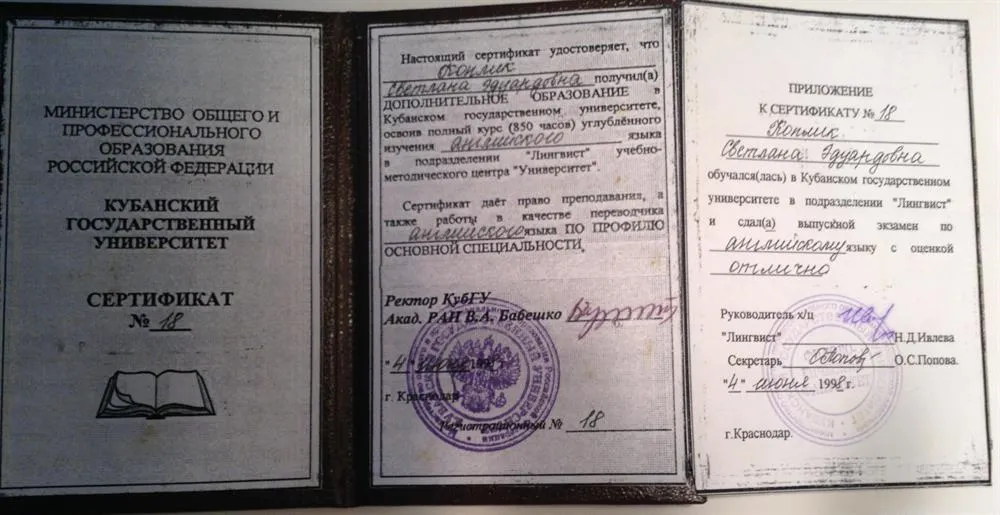 МИНИСТЕРСТВО ОБЩЕГО И
ПРОФЕССИОНАЛЬНОГО
ОБРАЗОВАНИЯ
РОССИЙСКОЙ ФЕДЕРАЦИИ
КУБАНСКИЙ
ГОСУДАРСТВЕННЫЙ
УНИВЕРСИТЕТ
СЕРТИФИКАТ
№ 18
Настоящий сертификат удостоверяет, что
Коплик
Светлана Эдуардовна получил(а)
ДОПОЛНИТЕЛЬНОЕ ОБРАЗОВАНИЕ в
Кубанском государственном университете,
освоив полный курс (850 часов) углублённого
изучения английского языка
в подразделении "Лингвист" учебно-
методического центра "Университет".
Сертификат даёт право преподавания, а
также работы в качестве переводчика
английского языка ПО ПРОФИЛЮ
ОСНОВНОЙ СПЕЦИАЛЬНОСТИ.
Ректор КубГУ
Акад. РАН В.А. Бабешко
"4" июня 1998г.
г. Краснодар
Регистрационный № 18
ПРИЛОЖЕНИЕ
К СЕРТИФИКАТУ № 18
Коплик
Светлана Эдуардовна
обучался(лась) в Кубанском государственном
университете в подразделении "Лингвист"
и сдал(а) выпускной экзамен по
английскому языку с оценкой
отлично
Руководитель х/ц
"Лингвист" Н.Д.Ивлева
Секретарь О.С.Попова.
"4" июня 1998г.
г.Краснодар.